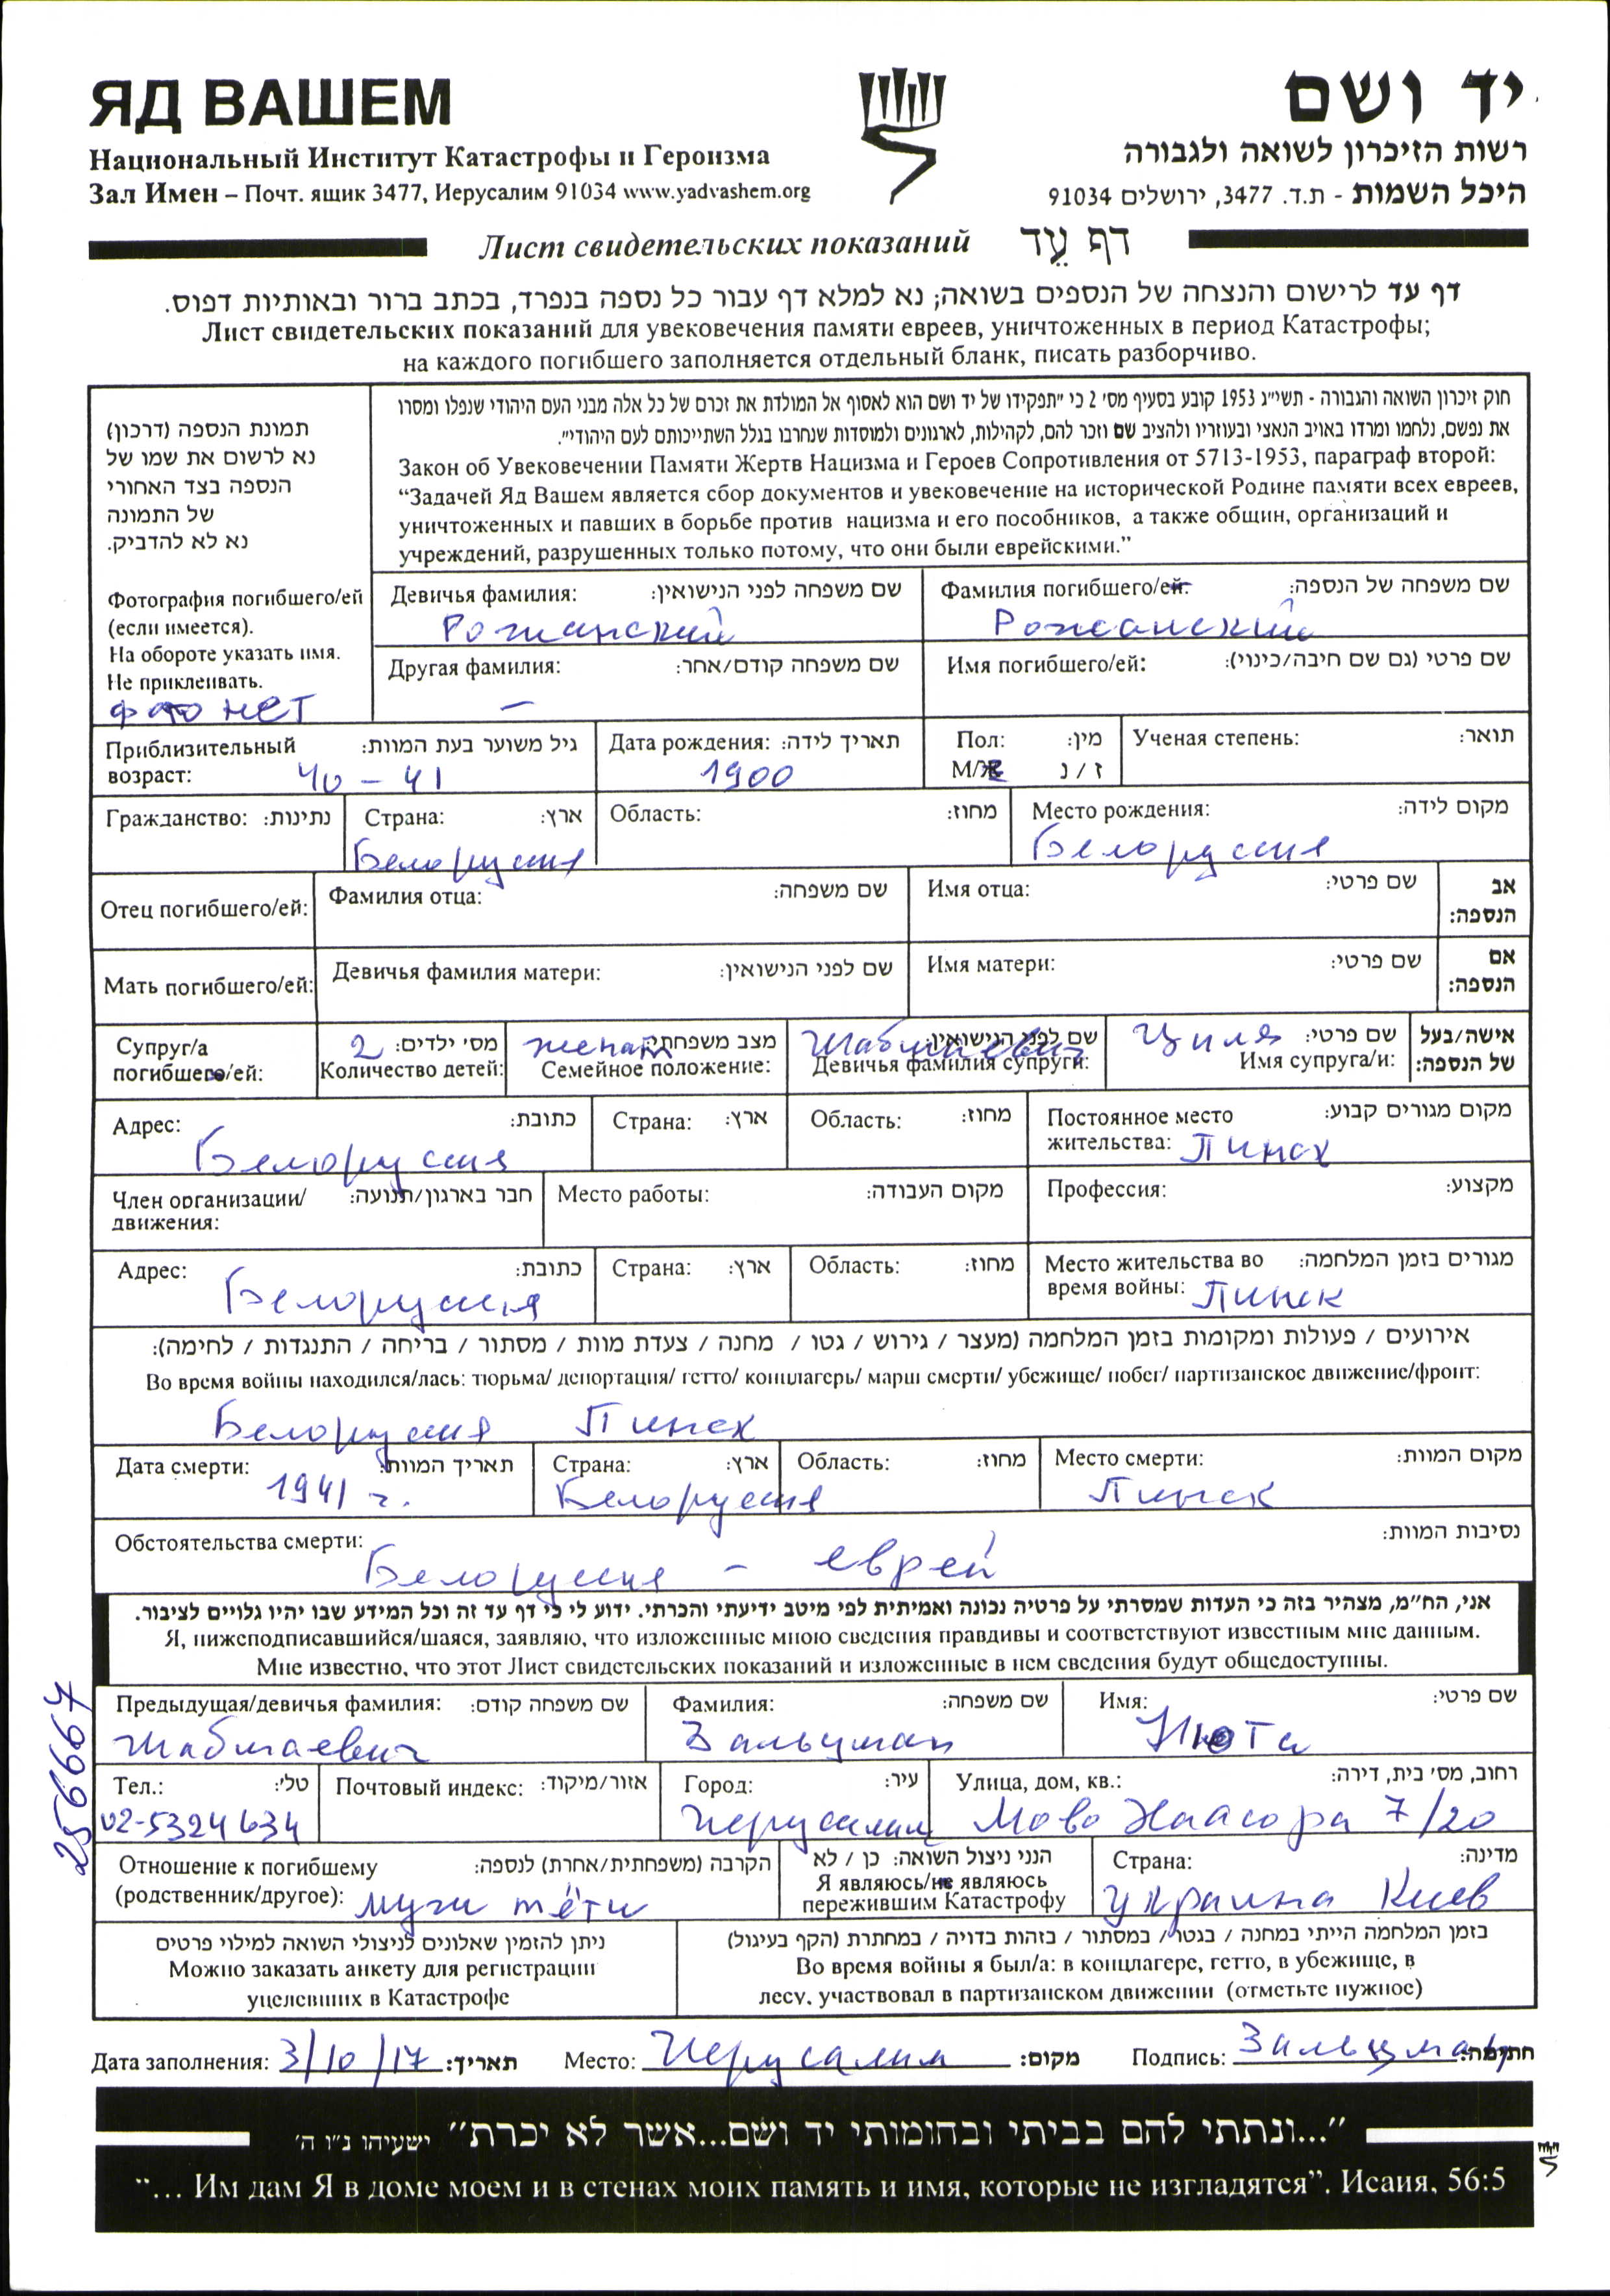 ЯД ВАШЕМ
יד ושם
Национальный Институт Катастрофы и Героизма
רשות הזיכרון לשואה ולגבורה
Зал Имен – Почт. ящик 3477, Иерусалим 91034 www.yadvashem.org
היכל השמות - ת.ד. 3477, ירושלים 91034
Лист свидетельских показаний דף עֵד
דף עד לרישום והנצחה של הנספים בשואה; נא למלא דף עבור כל נספה בנפרד, בכתב ברור ובאותיות דפוס.
Лист свидетельских показаний для увековечения памяти евреев, уничтоженных в период Катастрофы;
на каждого погибшего заполняется отдельный бланк, писать разборчиво.
תמונת הנספה (דרכון)
נא לרשום את שמו של
הנספה בצד האחורי
של התמונה
נא לא להדביק.
Фотография погибшего/ей
(если имеется).
На обороте указать имя.
Не приклеивать.
фото нет
חוק זיכרון השואה והגבורה - תשי״ג 1953 קובע בסעיף מס׳ 2 כי ״תפקידו של יד ושם הוא לאסוף אל המולדת את זכרם של כל אלה מבני העם היהודי שנפלו ומסרו
את נפשם, נלחמו ומרדו באויב הנאצי ובעוזריו ולהציב שם וזכר להם, לקהילות, לארגונים ולמוסדות שנחרבו בגלל השתייכותם לעם היהודי״.
Закон об Увековечении Памяти Жертв Нацизма и Героев Сопротивления от 5713-1953, параграф второй:
“Задачей Яд Вашем является сбор документов и увековечение на исторической Родине памяти всех евреев,
уничтоженных и павших в борьбе против нацизма и его пособников, а также общин, организаций и
учреждений, разрушенных только потому, что они были еврейскими.”
Девичья фамилия: שם משפחה לפני הנישואין:
Рожанский
Фамилия погибшего/ей: שם משפחה של הנספה:
Рожанский
Другая фамилия: שם משפחה קודם/אחר:
–
Имя погибшего/ей: שם פרטי (גם שם חיבה/כינוי):
Приблизительный גיל משוער בעת המוות:
возраст: 40 – 41
Дата рождения: תאריך לידה:
1900
Пол: מין:
М/Ж ז / נ
Ученая степень: תואר:
Гражданство: נתינות:
Страна: ארץ:
Белоруссия
Область: מחוז:
Место рождения: מקום לידה:
Белоруссия
Отец погибшего/ей:
Фамилия отца: שם משפחה:
Имя отца: שם פרטי:
אב
הנספה:
Мать погибшего/ей:
Девичья фамилия матери: שם לפני הנישואין:
Имя матери: שם פרטי:
אם
הנספה:
Супруг/а
погибшего/ей:
2 מס׳ ילדים:
Количество детей:
женат מצב משפחתי:
Семейное положение:
Шабмаевич שם לפני הנישואין:
Девичья фамилия супруги:
Циля שם פרטי:
Имя супруга/и:
אישה/בעל
של הנספה:
Адрес: כתובת:
Белоруссия
Страна: ארץ:
Область: מחוז:
Постоянное место מקום מגורים קבוע:
жительства: Пинск
Член организации/ חבר בארגון/תנועה:
движения:
Место работы: מקום העבודה:
Профессия: מקצוע:
Адрес: כתובת:
Белоруссия
Страна: ארץ:
Область: מחוז:
Место жительства во מגורים בזמן המלחמה:
время войны: Пинск
אירועים / פעולות ומקומות בזמן המלחמה (מעצר / גירוש / גטו / מחנה / צעדת מוות / מסתור / בריחה / התנגדות / לחימה):
Во время войны находился/лась: тюрьма/ депортация/ гетто/ концлагерь/ марш смерти/ убежище/ побег/ партизанское движение/фронт:
Белоруссия Пинск
Дата смерти: תאריך המוות:
1941 г.
Страна: ארץ:
Белоруссия
Область: מחוז:
Место смерти: מקום המוות:
Пинск
Обстоятельства смерти: נסיבות המוות:
Белоруссия – еврей
אני, הח״מ, מצהיר בזה כי העדות שמסרתי על פרטיה נכונה ואמיתית לפי מיטב ידיעתי והכרתי. ידוע לי כי דף עד זה וכל המידע שבו יהיו גלויים לציבור.
Я, нижеподписавшийся/шаяся, заявляю, что изложенные мною сведения правдивы и соответствуют известным мне данным.
Мне известно, что этот Лист свидетельских показаний и изложенные в нем сведения будут общедоступны.
256667
Предыдущая/девичья фамилия: שם משפחה קודם:
Шабмаевич
Фамилия: שם משפחה:
Зальцман
Имя: שם פרטי:
Нюта
Тел.: טל׳:
02-5324634
Почтовый индекс: אזור/מיקוד:
Город: עיר:
Иерусалим
Улица, дом, кв.: רחוב, מס׳ בית, דירה:
7/20
Отношение к погибшему הקרבה (משפחתית/אחרת) לנספה:
(родственник/другое): муж тёти
הנני ניצול השואה: כן / לא
Я являюсь/не являюсь
пережившим Катастрофу
Страна: מדינה:
Украина Киев
ניתן להזמין שאלונים לניצולי השואה למילוי פרטים
Можно заказать анкету для регистрации
уцелевших в Катастрофе
בזמן המלחמה הייתי במחנה / בגטו / במסתור / בזהות בדויה / במחתרת (הקף בעיגול)
Во время войны я был/а: в концлагере, гетто, в убежище, в
лесу, участвовал в партизанском движении (отметьте нужное)
Дата заполнения: 3/10/17 תאריך: Место: Иерусалим מקום: Подпись: Зальцман חתימה:
״...ונתתי להם בביתי ובחומותי יד ושם...אשר לא יכרת״ ישעיהו נ״ו ה׳
“... Им дам Я в доме моем и в стенах моих память и имя, которые не изгладятся”. Исаия, 56:5